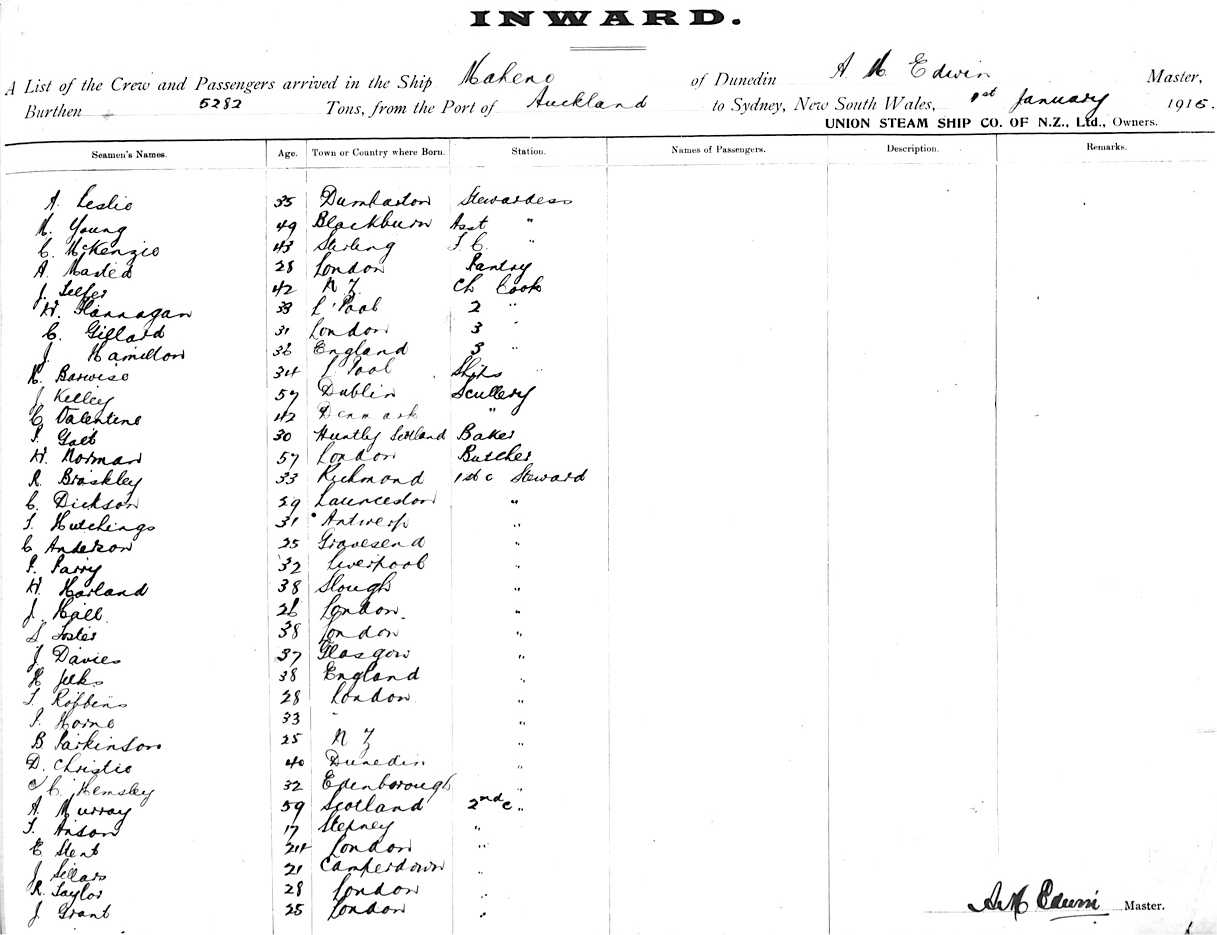 INWARD.
A List of the Crew and Passengers arrived in the Ship Maheno of Dunedin A M Edwin Master,
Burthen 5282 Tons, from the Port of Auckland to Sydney, New South Wales, 1st January 1916.
UNION STEAM SHIP CO. OF N.Z., Ltd., Owners.
Seamen's Names. Age. Town or Country where Born. Station. Names of Passengers. Description. Remarks.
A. Leslie 35 Dumbarton Stewardess
M. Young 49 Blackburn Asst "
C. McKenzie 43 Stirling T C. "
A. 28 London Pantry
J. Telfer 42 N Z Ch Cook
W. Flannagan 38 L'Pool 2 "
C. Gillard 31 London 3 "
J. Hamilton 36 England 3 "
R. Barwise 34 L Pool Ships "
J Kelley 57 Dublin Scullery
C Valentine 42 Denmark "
P. Galt 30 Huntly Scotland Baker
W. Norman 57 London Butcher
R. Brackley 33 Richmond 1st c Steward
C. Dickson 29 Launceston "
T. Hutchings 31 Antwerp "
C Anderson 25 Gravesend "
P. Parry 32 Liverpool "
W. Harland 38 Slough "
J. Hall 26 London "
S Foster 38 London "
J Davies 37 Glasgow "
H Jelks 38 England "
T Robbins 28 London "
P. Horne 33 " "
B Parkinson 25 N Z "
D. Christie 40 Dunedin "
C. Hemsley 32 Edenborough "
A. Murray 59 Scotland 2nd c "
T. Anson 17 Stepney "
E Stent 24 London "
J Sellars 21 Camperdown "
R. Taylor 28 London "
J Grant 25 London "
A M Edwin Master.